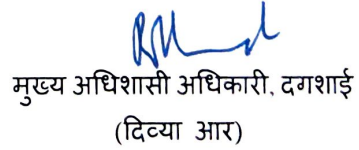 मुख्य अधिशासी अधिकारी, दगशाई
(दिव्या आर)